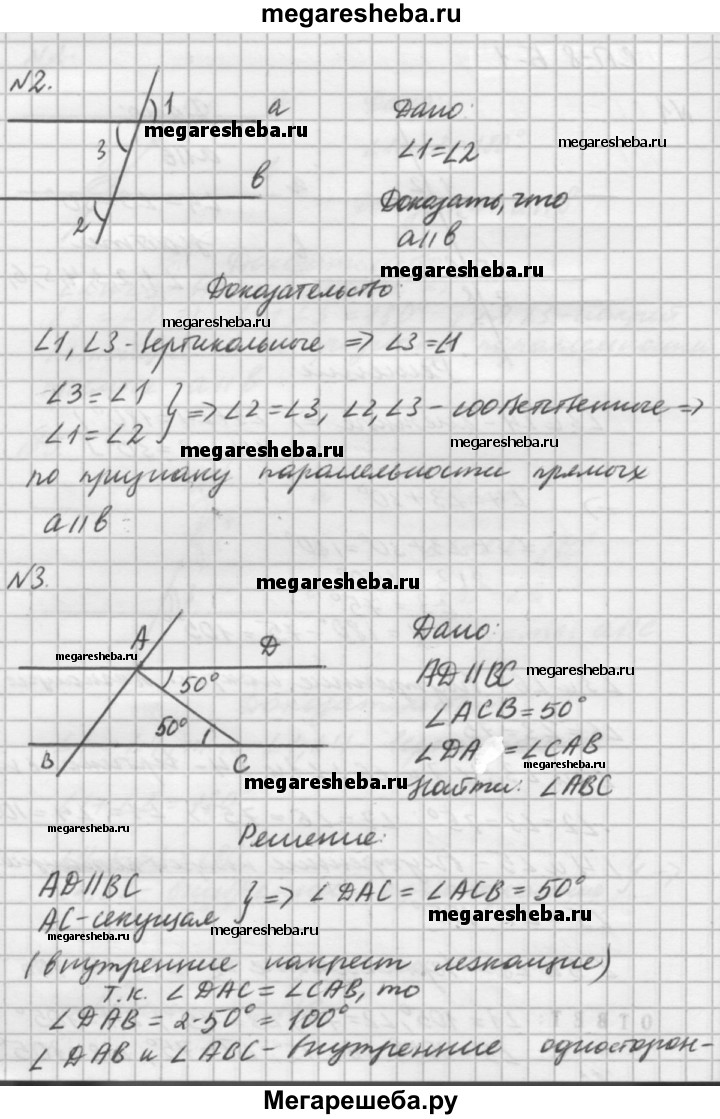 megaresheba.ru
№2.
1
a
3
megaresheba.ru
в
2
Дано:
∠1=∠2
megaresheba.ru
Доказать, что
a||в
megaresheba.ru
Доказательство:
megaresheba.ru
∠1, ∠3 - вертикальные => ∠3=∠1
∠3=∠1
∠1=∠2 } => ∠2=∠3, ∠2,∠3 - соответственные =>
megaresheba.ru
megaresheba.ru
по признаку параллельности прямых
a||в
№3.
megaresheba.ru
A
D
megaresheba.ru
50°
50°
B
C
Дано:
AD||BC
megaresheba.ru
∠ACB=50°
∠DA =∠CAB
megaresheba.ru
megaresheba.ru
Найти: ∠ABC
megaresheba.ru
Решение:
AD||BC
AC-секущая } => ∠DAC = ∠ACB = 50°
megaresheba.ru
megaresheba.ru
(внутренние накрест лежащие)
т.к. ∠DAC = ∠CAB, то
∠DAB = 2·50° = 100°
∠DAB и ∠ABC - внутренние односторон-
Мегарешеба.ру